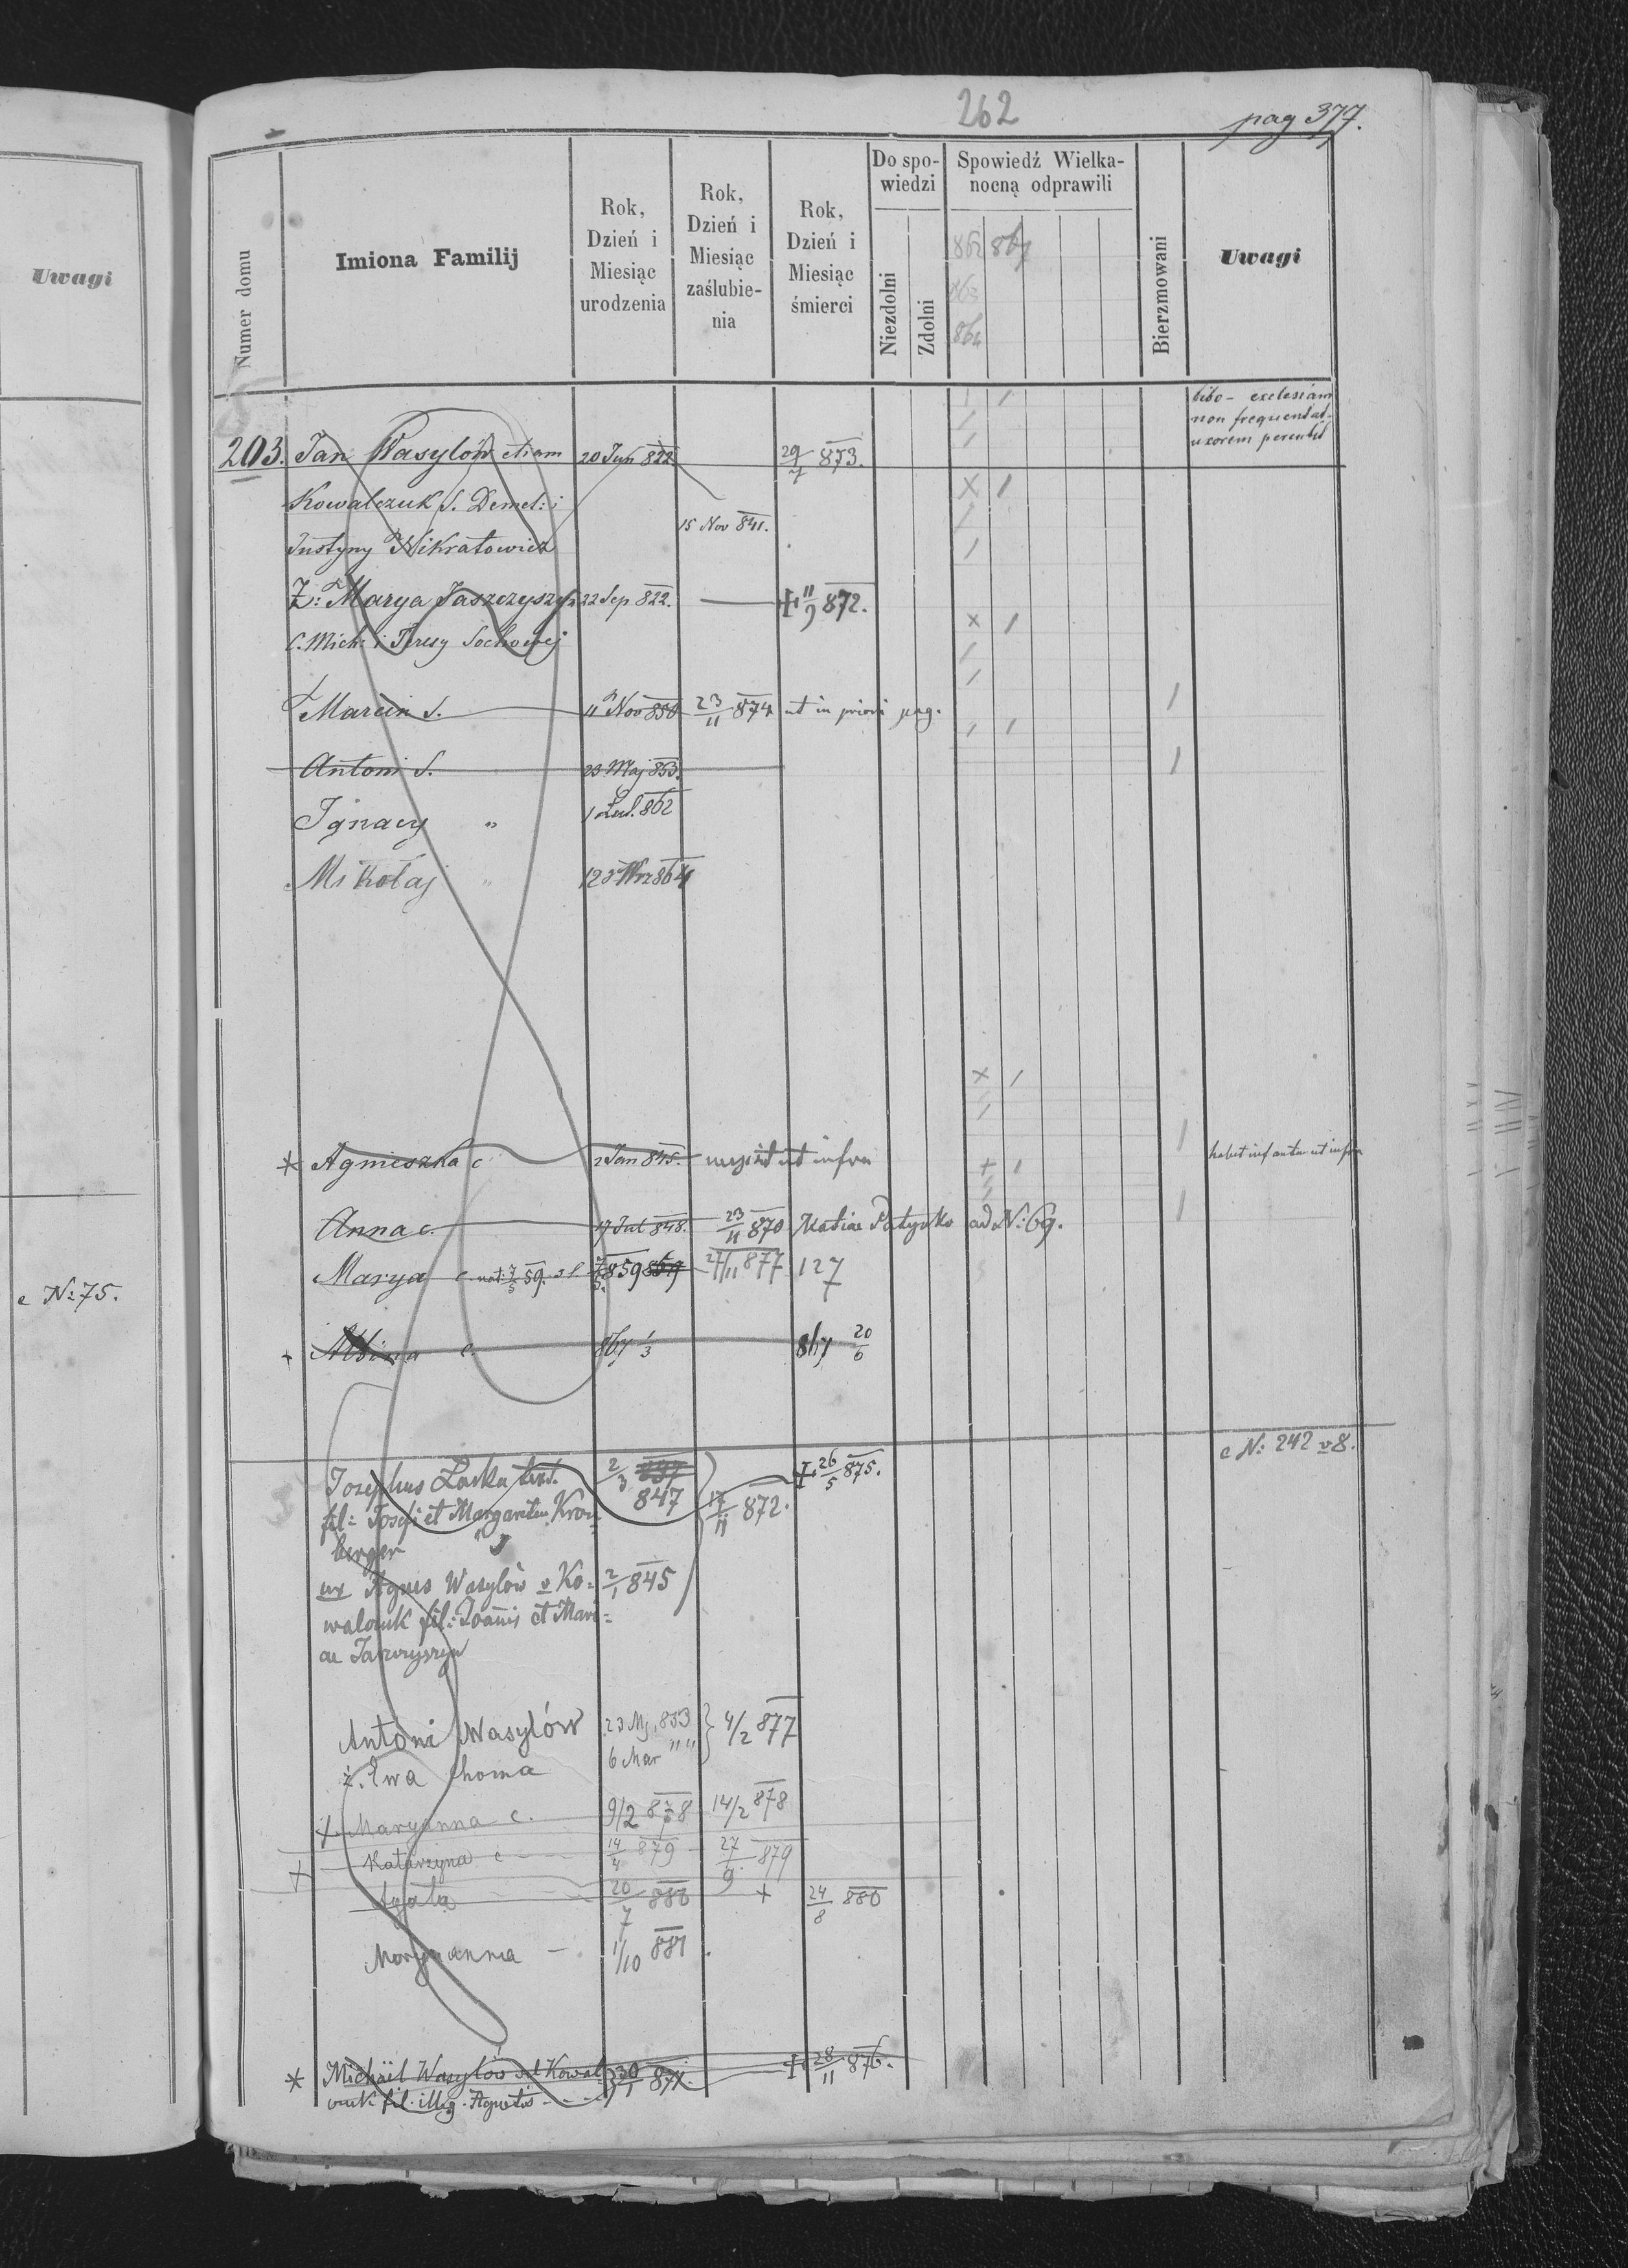 Uwagi
e No 75.
262
pag 377.
Numer domu
Imiona Familij
Rok,
Dzień i
Miesiąc
urodzenia
Rok,
Dzień i
Miesiąc
zaślubie-
nia
Rok,
Dzień i
Miesiąc
śmierci
Do spo-
wiedzi
Niezdolni
Zdolni
Spowiedź Wielka-
nocną odprawili
862 867
863
864
Bierzmowani
Uwagi
bibo - ecclesiam
non frequentat -
uxorem percutit
203. Jan Wasylów etiam 20 Jun 822 29/7 873.
Kowalczuk S. Demet: i
15 Nov 841.
Justyny Nikratowicz
Ż: Marya Jaszczyszyn 22 Sep 822. 11/9 872.
C. Mich: i Teresy Sochowej
Marcin S. 11 Nov 850 23/11 874 ut in priori pag.
Antoni S. 23 Maj 853.
Ignacy " 862
Mikołaj " 864
* Agnieszka c 2 Jan 845. ut infra habet ut infra
Anna c. 17 Jul 848. 23/11 870 ad No: 69.
Marya c nat: 7/5 59. 859 27/11 877 127
Albina c. 867 1/3 867 20/6
e No: 242 v 8.
Josephus Laska 2/3 847 26/5 875.
fil: Josefi et Margaretha Kron= 17/11 872.
berger
ux Agnes Wasylów v Ko= 2/1 845
walczuk fil: Joannis et Mari=
ae Jaszczyszyn
Antoni Wasylów 23 Mj 853 4/2 877
ż. Ewa Choma 6 Mar " "
+ Maryanna c. 9/2 878 14/2 878
+ Katarzyna c 14/4 879 27/9 879
Agata 20/7 880 + 24/8 880
Maryanna - 1/10 881
* Michail Wasylów vel Kowal= 30/1 871. 28/11 876.
czuk fil. illeg. Agnetis